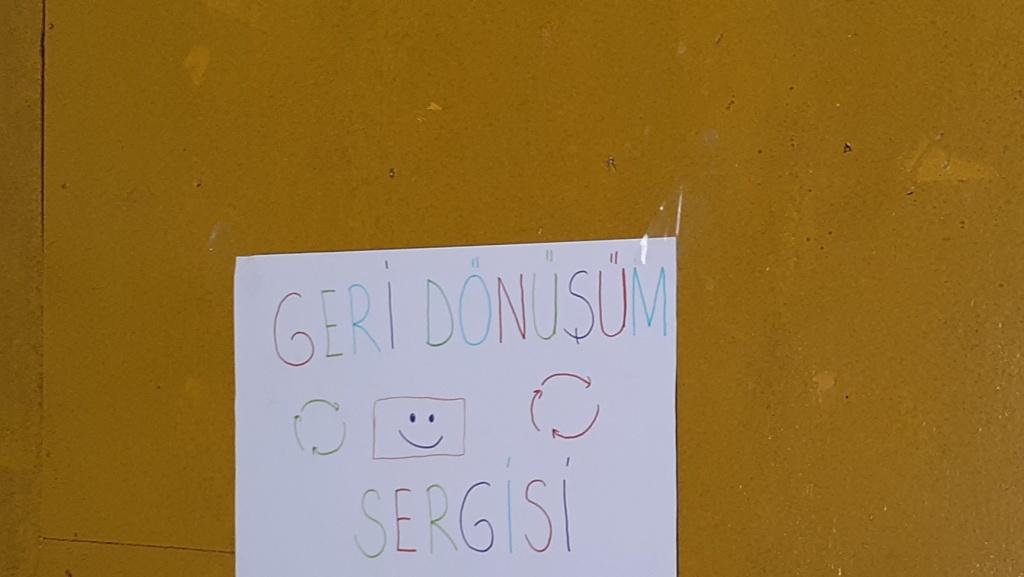 GERİ DÖNÜŞÜM
SERGİSİ